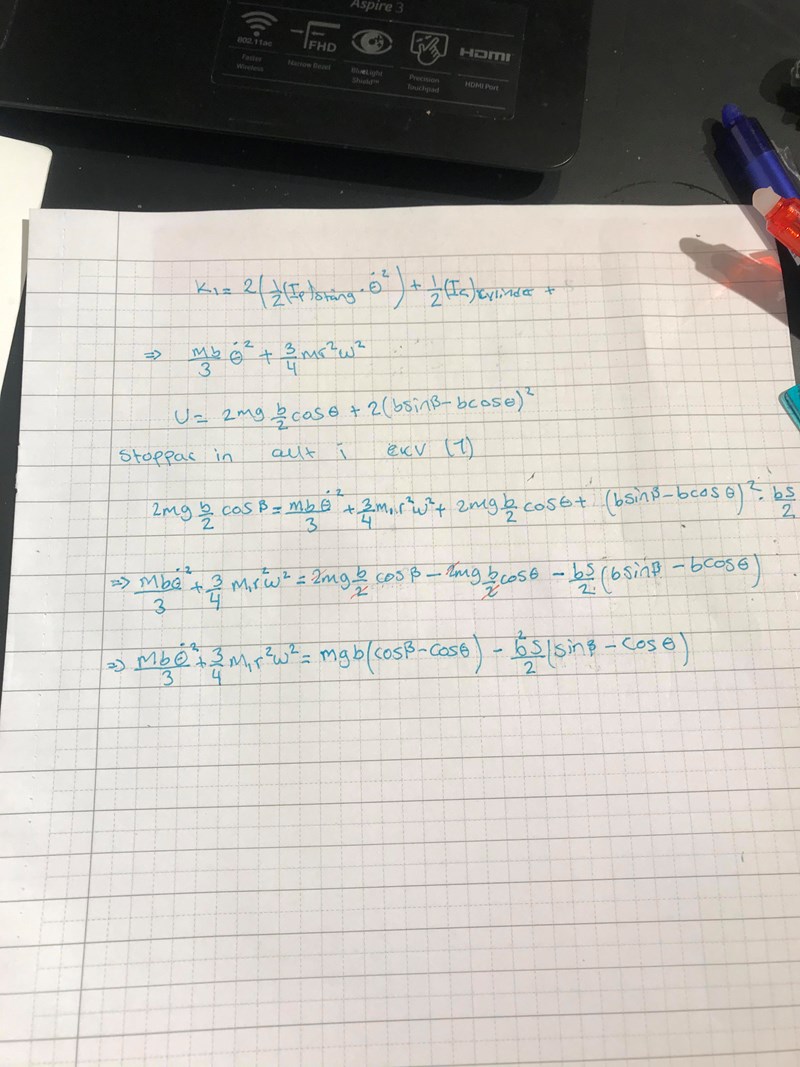 Aspire 3
802.11ac FHD HDMI
Faster Wireless Narrow Bezel BlueLight Shield™ Precision Touchpad HDMI Port
K₁ = 2(1/2 (I_P)stång · θ̇²) + 1/2 (I_G)cylinder +
⇒ mb/3 θ̇² + 3/4 mr²ω²
U = 2mg b/2 cosθ + 2(bsinβ - bcosθ)²
Stoppar in allt i ekv (1)
2mg b/2 cosβ = mbθ̇²/3 + 3/4 m₁r²ω² + 2mg b/2 cosθ + (bsinβ - bcosθ)² · bS/2
⇒ mbθ̇²/3 + 3/4 m₁r²ω² = 2mg b/2 cosβ - 2mg b/2 cosθ - bS/2 (bsinβ - bcosθ)
⇒ mbθ̇²/3 + 3/4 m₁r²ω² = mgb(cosβ - cosθ) - b²S/2 (sinβ - cosθ)